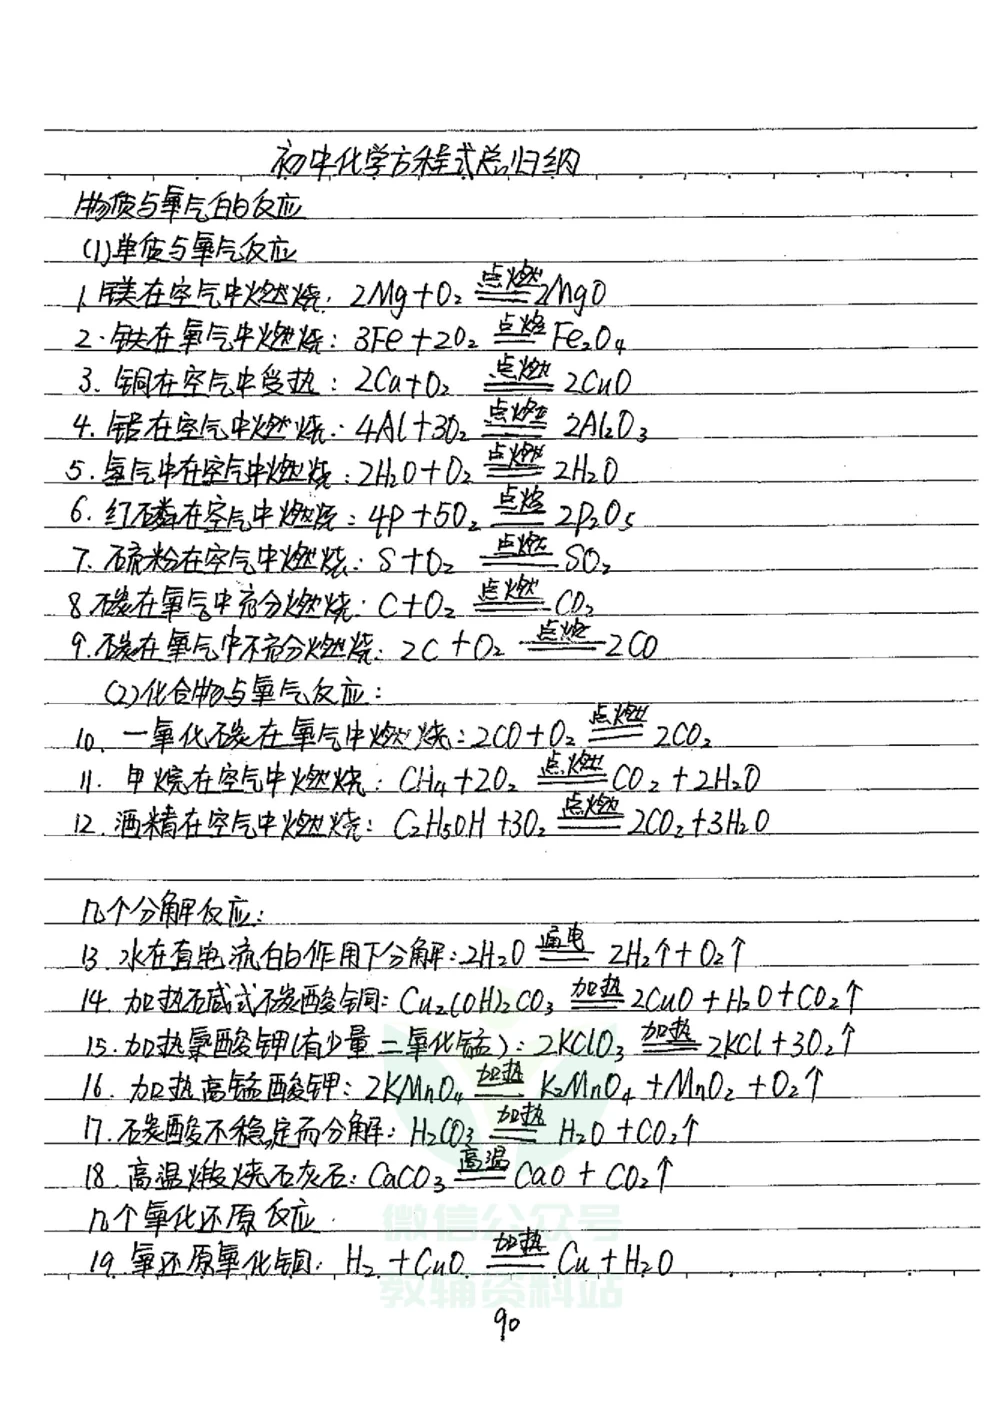 初中化学方程式总归纳
物质与氧气的反应
(1)单质与氧气反应
1. 镁在空气中燃烧: 2Mg+O₂ 点燃 2MgO
2. 铁在氧气中燃烧: 3Fe+2O₂ 点燃 Fe₂O₄
3. 铜在空气中受热: 2Ca+O₂ 点燃 2CuO
4. 铝在空气中燃烧: 4Al+3O₂ 点燃 2Al₂O₃
5. 氢气中在空气中燃烧: 2H₂O+O₂ 点燃 2H₂O
6. 红磷在空气中燃烧: 4P+5O₂ 点燃 2P₂O₅
7. 硫粉在空气中燃烧: S+O₂ 点燃 SO₂
8. 碳在氧气中充分燃烧: C+O₂ 点燃 CO₂
9. 碳在氧气中不充分燃烧: 2C+O₂ 点燃 2CO
(2)化合物与氧气反应:
10. 一氧化碳在氧气中燃烧: 2CO+O₂ 点燃 2CO₂
11. 甲烷在空气中燃烧: CH₄+2O₂ 点燃 CO₂+2H₂O
12. 酒精在空气中燃烧: C₂H₅OH+3O₂ 点燃 2CO₂+3H₂O
几个分解反应:
13. 水在直电流的作用下分解: 2H₂O 通电 2H₂↑+O₂↑
14. 加热碱式碳酸铜: Cu₂(OH)₂CO₃ 加热 2CuO+H₂O+CO₂↑
15. 加热氯酸钾(有少量二氧化锰): 2KClO₃ 加热 2KCl+3O₂↑
16. 加热高锰酸钾: 2KMnO₄ 加热 K₂MnO₄+MnO₂+O₂↑
17. 碳酸不稳定而分解: H₂CO₃ 加热 H₂O+CO₂↑
18. 高温煅烧石灰石: CaCO₃ 高温 CaO+CO₂↑
几个氧化还原反应
19. 氢还原氧化铜: H₂+CuO 加热 Cu+H₂O
微信公众号
教辅资料站
90